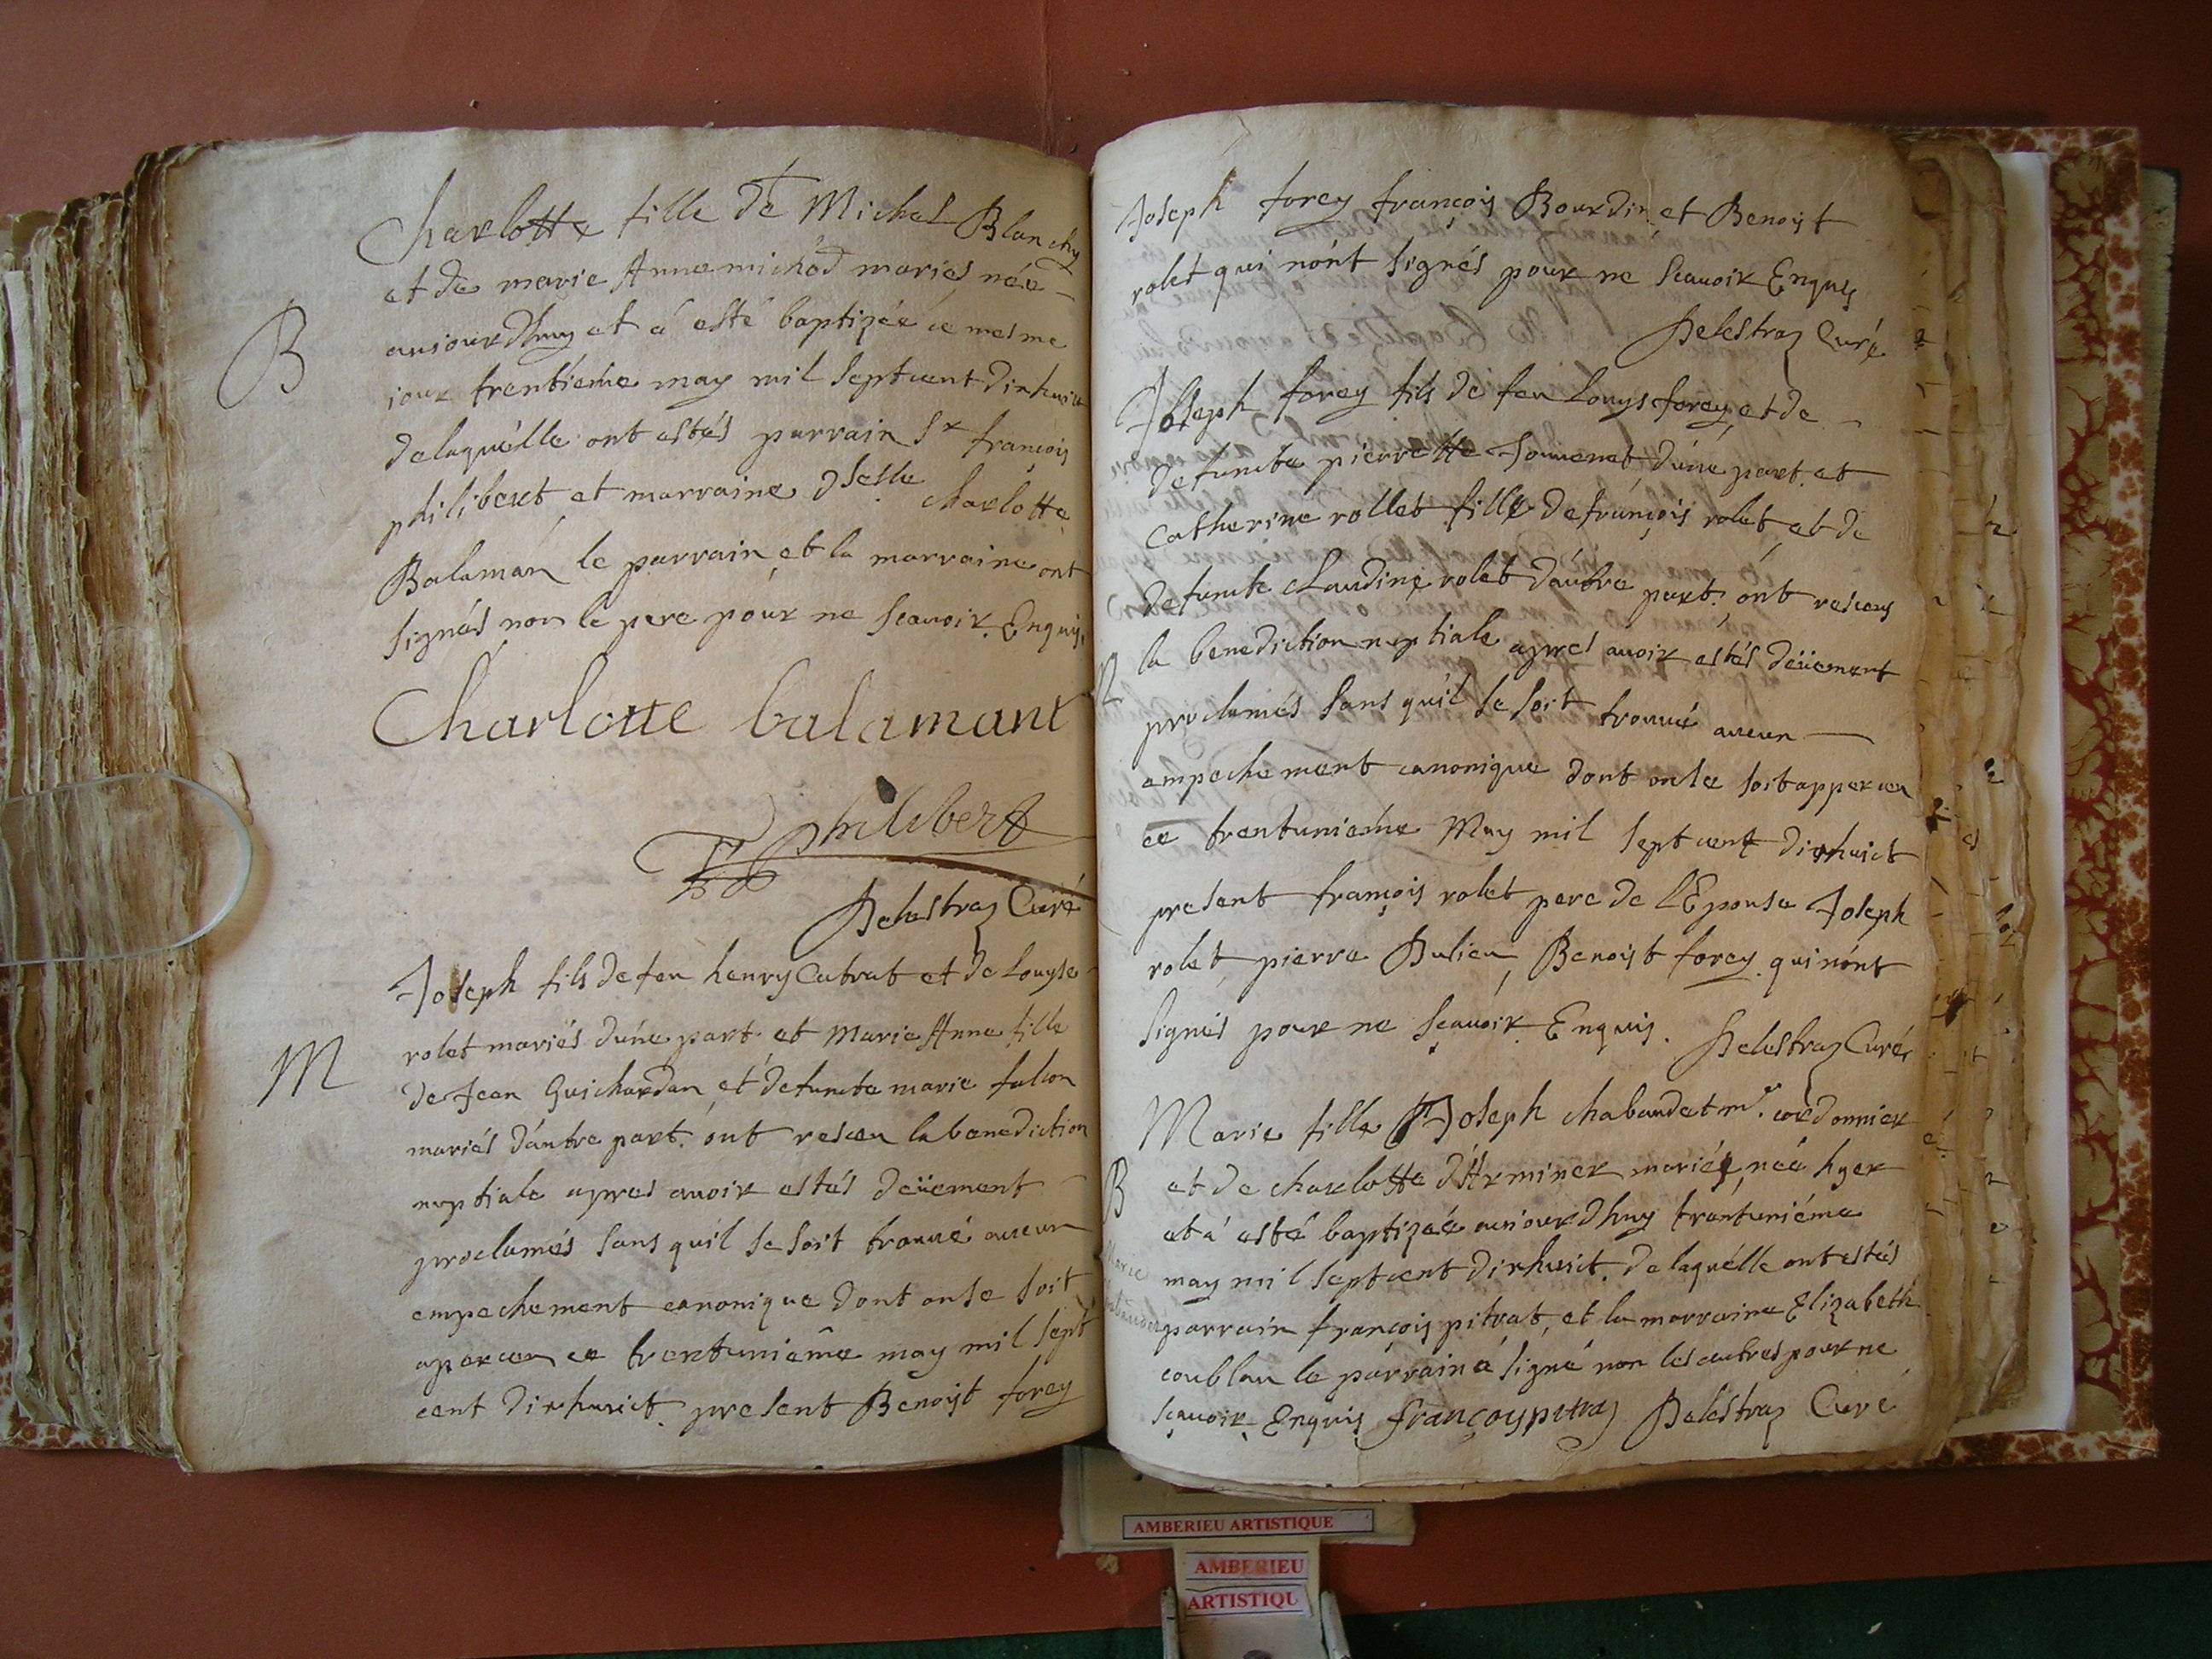 Charlotte fille de Michel Blanchy
et de marie Anne michód mariés née
B
auiourdhuy et á esté baptizée ce mesme
iour trentiéme may mil septcent dixhuict
delaquélle ont estés parrain Sr françois
philibert et marraine dselle charlotte
Balaman le parrain et la marraine ont
signés non le pere pour ne scauoir Enquis
Charlotte balamant
philibert
Delestraz Curé
Joseph fils de feu henry Cutrat et de Louyse
M
rolet mariés dúne part et Marie Anne fille
de Jean Guichardan et defuncte marie falcon
mariés dáutre part ont resceu la benediction
nuptiale apres auoir estés deüement
proclamés sans quíl se soit trouué aucun
empechement canonique dont onse soit
aperceu ce trentuniême may mil sept
cent dixhuict present Benoist forey
Joseph forey françois Bourdin et Benoist
rolet qui nónt signés pour ne scauoir Enquis
Delestraz Curé
Joseph forey fils de feu Louys forey et de
defuncte pierrette Jouuenet dúne part et
catherine rollet fille de françois rolet et de
defuncte claudine rolet dáutre part ont resceus
la benediction nuptiale apres auoir estés deüement
proclamés sans quíl se soit trouué aucun
empechement canonique dont onse soit apperceu
ce trentunieme May mil sept cent dixhuict
present françois rolet pere de lEpouse Joseph
rolet pierre Bulieu, Benoist forey qui nónt
signés pour ne sçauoir Enquis. Delestraz Curé
Marie fille Joseph chabaudet mr. cordonnier
B
et de charlotte dArminer mariés, née hyer
et á esté baptizée auiourdhuy trentuniéme
may mil septcent dixhuict. delaquélle ont estés
parrain françois pitrat, et la marraine Elizabeth
coublan le parrain á signé non les autres pour ne
sçauoir Enquis françoys pitraz Delestraz Curé
AMBERIEU ARTISTIQUE
AMBERIEU
ARTISTIQU